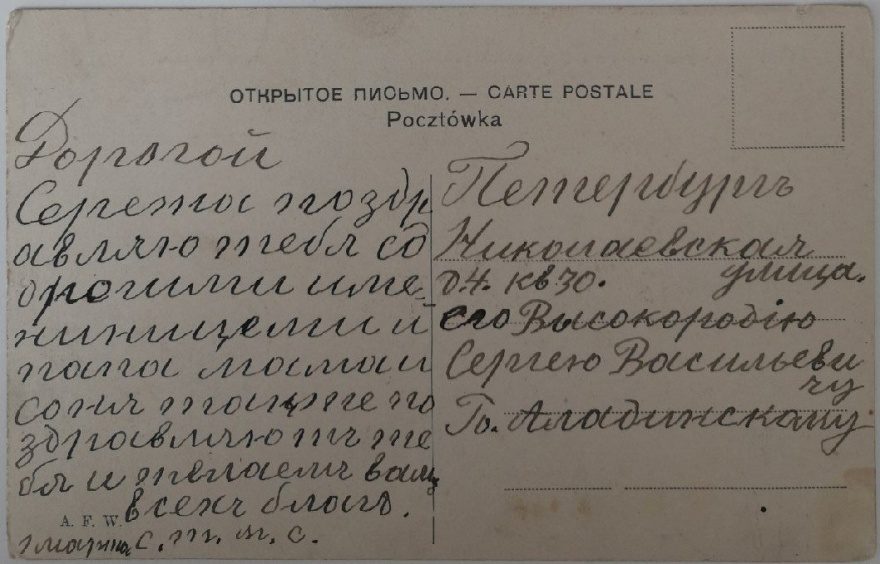 ОТКРЫТОЕ ПИСЬМО. — CARTE POSTALE
Pocztówka
Дорогой
Сережа поздр
авляю тебя сд
орогими име-
ниницеми и
папа мама и
соня также по
здравляютъ те
бя и желаемъ вамъ
всехъ благъ.
A. F. W.
1 марта с. т. м. с.
Петербургъ
Николаевская
улица.
д 4. кв 30.
его Высокородію
Сергею Васильеви
чу
Го. Аладинскому